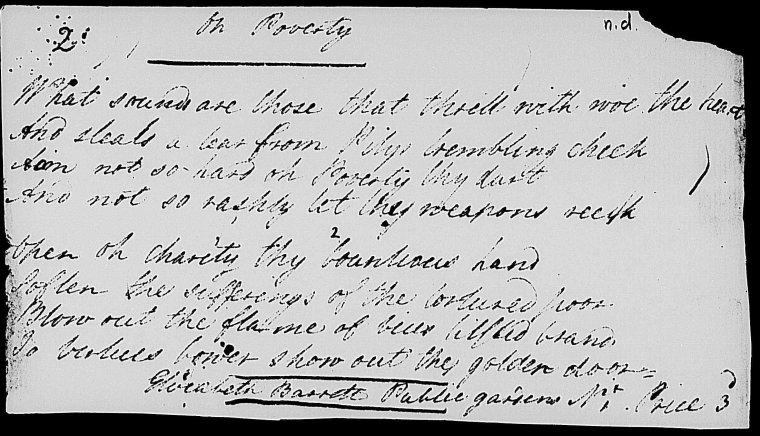 2 On Poverty n.d.
What sounds are those that thrill with woe the heart
And steals a tear from Pitys trembling cheek
Aim not so hard oh Poverty thy dart
And not so rashly let thy weapons reek
Open oh charity thy bounteous hand
Soften the sufferings of the tortured poor
Blow out the flame of vices brand
To virtues bower show out thy golden door
Elizabeth Barrett Public gardens Price 3